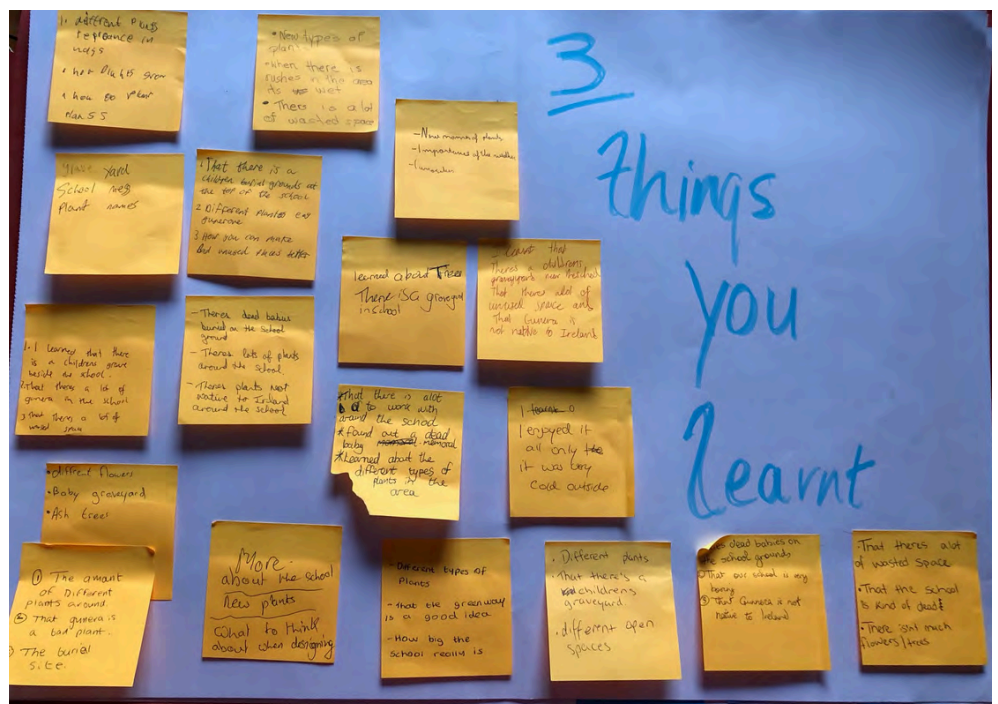 3
things
you
learnt
1. different
in
ways
• how
• how to
• New types of
plant
• when there is
rushes in the area
its wet
• There is a lot
of wasted space
- New names of plants
- importance of the
yard
School
plant names
1. That there is a
children burial grounds at
the top of the school
2. Different
3. How you can make
bad unused places better
learned about Trees
There is a graveyard
in school
that
Theres a childrens
graveyard near
That theres alot of
unused space and
That Gunera is
not native to Ireland
1. I learned that there
is a childrens grave
beside the school.
2. that theres a lot of
gunera in the school
3. that theres a lot of
wased
- Theres dead babies
buried on the school
ground
- Theres lots of plants
around the school.
- Theres plants not
native to Ireland
around the school
*that there is alot
to work with
around the school
*found out a dead
baby memorial
*Learned about the
different types of
plants in the
area
I
I enjoyed it
all only
it was very
cold outside
• different flowers
• Baby graveyard
• Ash trees
① The amant
of Different
plants around.
② That gunera is
a bad plant.
The burial
site.
More
about the school
New plants
What to think
about when designing
- Different types of
Plants
- that the greenway
is a good idea
- How big the
school really is
• Different plants
• That there's a
childrens
graveyard
• different open
spaces
dead babies on
school grounds
That our school is very
boring
③ That Gunnera is not
native to Ireland
• That theres alot
of wasted space
• That the school
is kind of dead
• There isnt much
flowers/trees